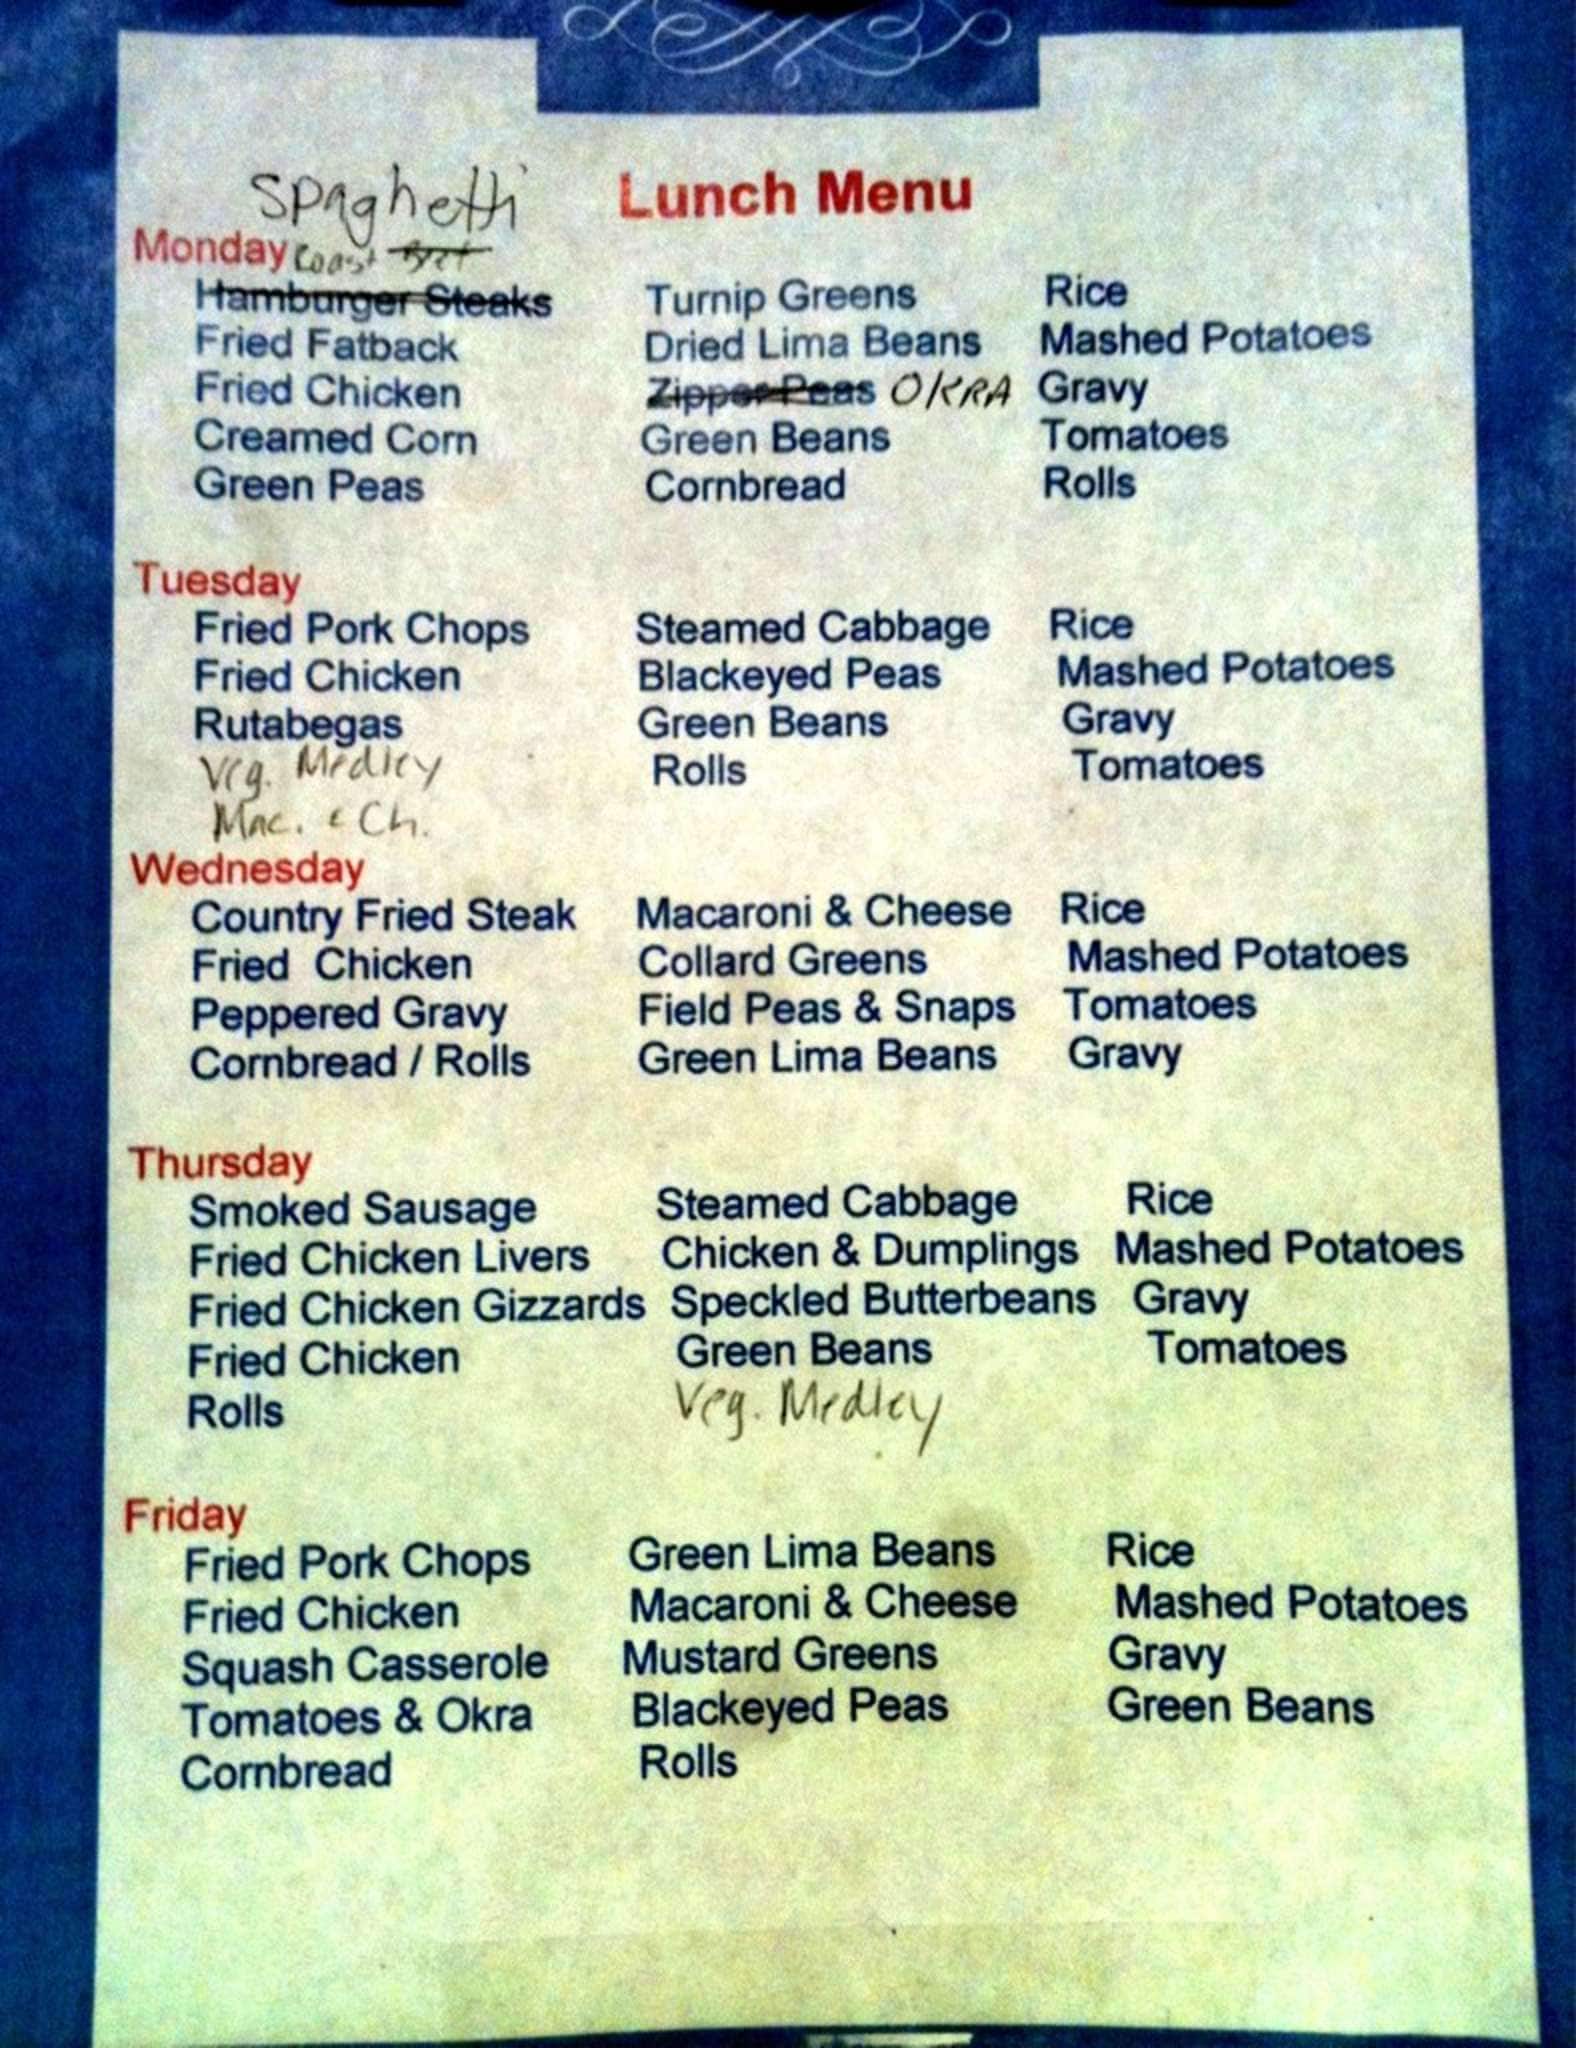 Spaghetti
Lunch Menu
Monday Roast Beef
Hamburger Steaks Turnip Greens Rice
Fried Fatback Dried Lima Beans Mashed Potatoes
Fried Chicken Zipper Peas OKRA Gravy
Creamed Corn Green Beans Tomatoes
Green Peas Cornbread Rolls
Tuesday
Fried Pork Chops Steamed Cabbage Rice
Fried Chicken Blackeyed Peas Mashed Potatoes
Rutabegas Green Beans Gravy
Veg. Medley Rolls Tomatoes
Mac. & Ch.
Wednesday
Country Fried Steak Macaroni & Cheese Rice
Fried Chicken Collard Greens Mashed Potatoes
Peppered Gravy Field Peas & Snaps Tomatoes
Cornbread / Rolls Green Lima Beans Gravy
Thursday
Smoked Sausage Steamed Cabbage Rice
Fried Chicken Livers Chicken & Dumplings Mashed Potatoes
Fried Chicken Gizzards Speckled Butterbeans Gravy
Fried Chicken Green Beans Tomatoes
Rolls Veg. Medley
Friday
Fried Pork Chops Green Lima Beans Rice
Fried Chicken Macaroni & Cheese Mashed Potatoes
Squash Casserole Mustard Greens Gravy
Tomatoes & Okra Blackeyed Peas Green Beans
Cornbread Rolls